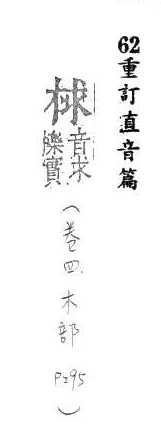 62重訂直音篇
梂
音求
櫟實
(卷四.木部 P295)